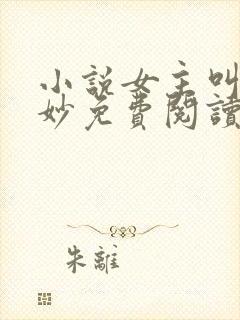 小說女主叫
妙免費閱讀
朱離